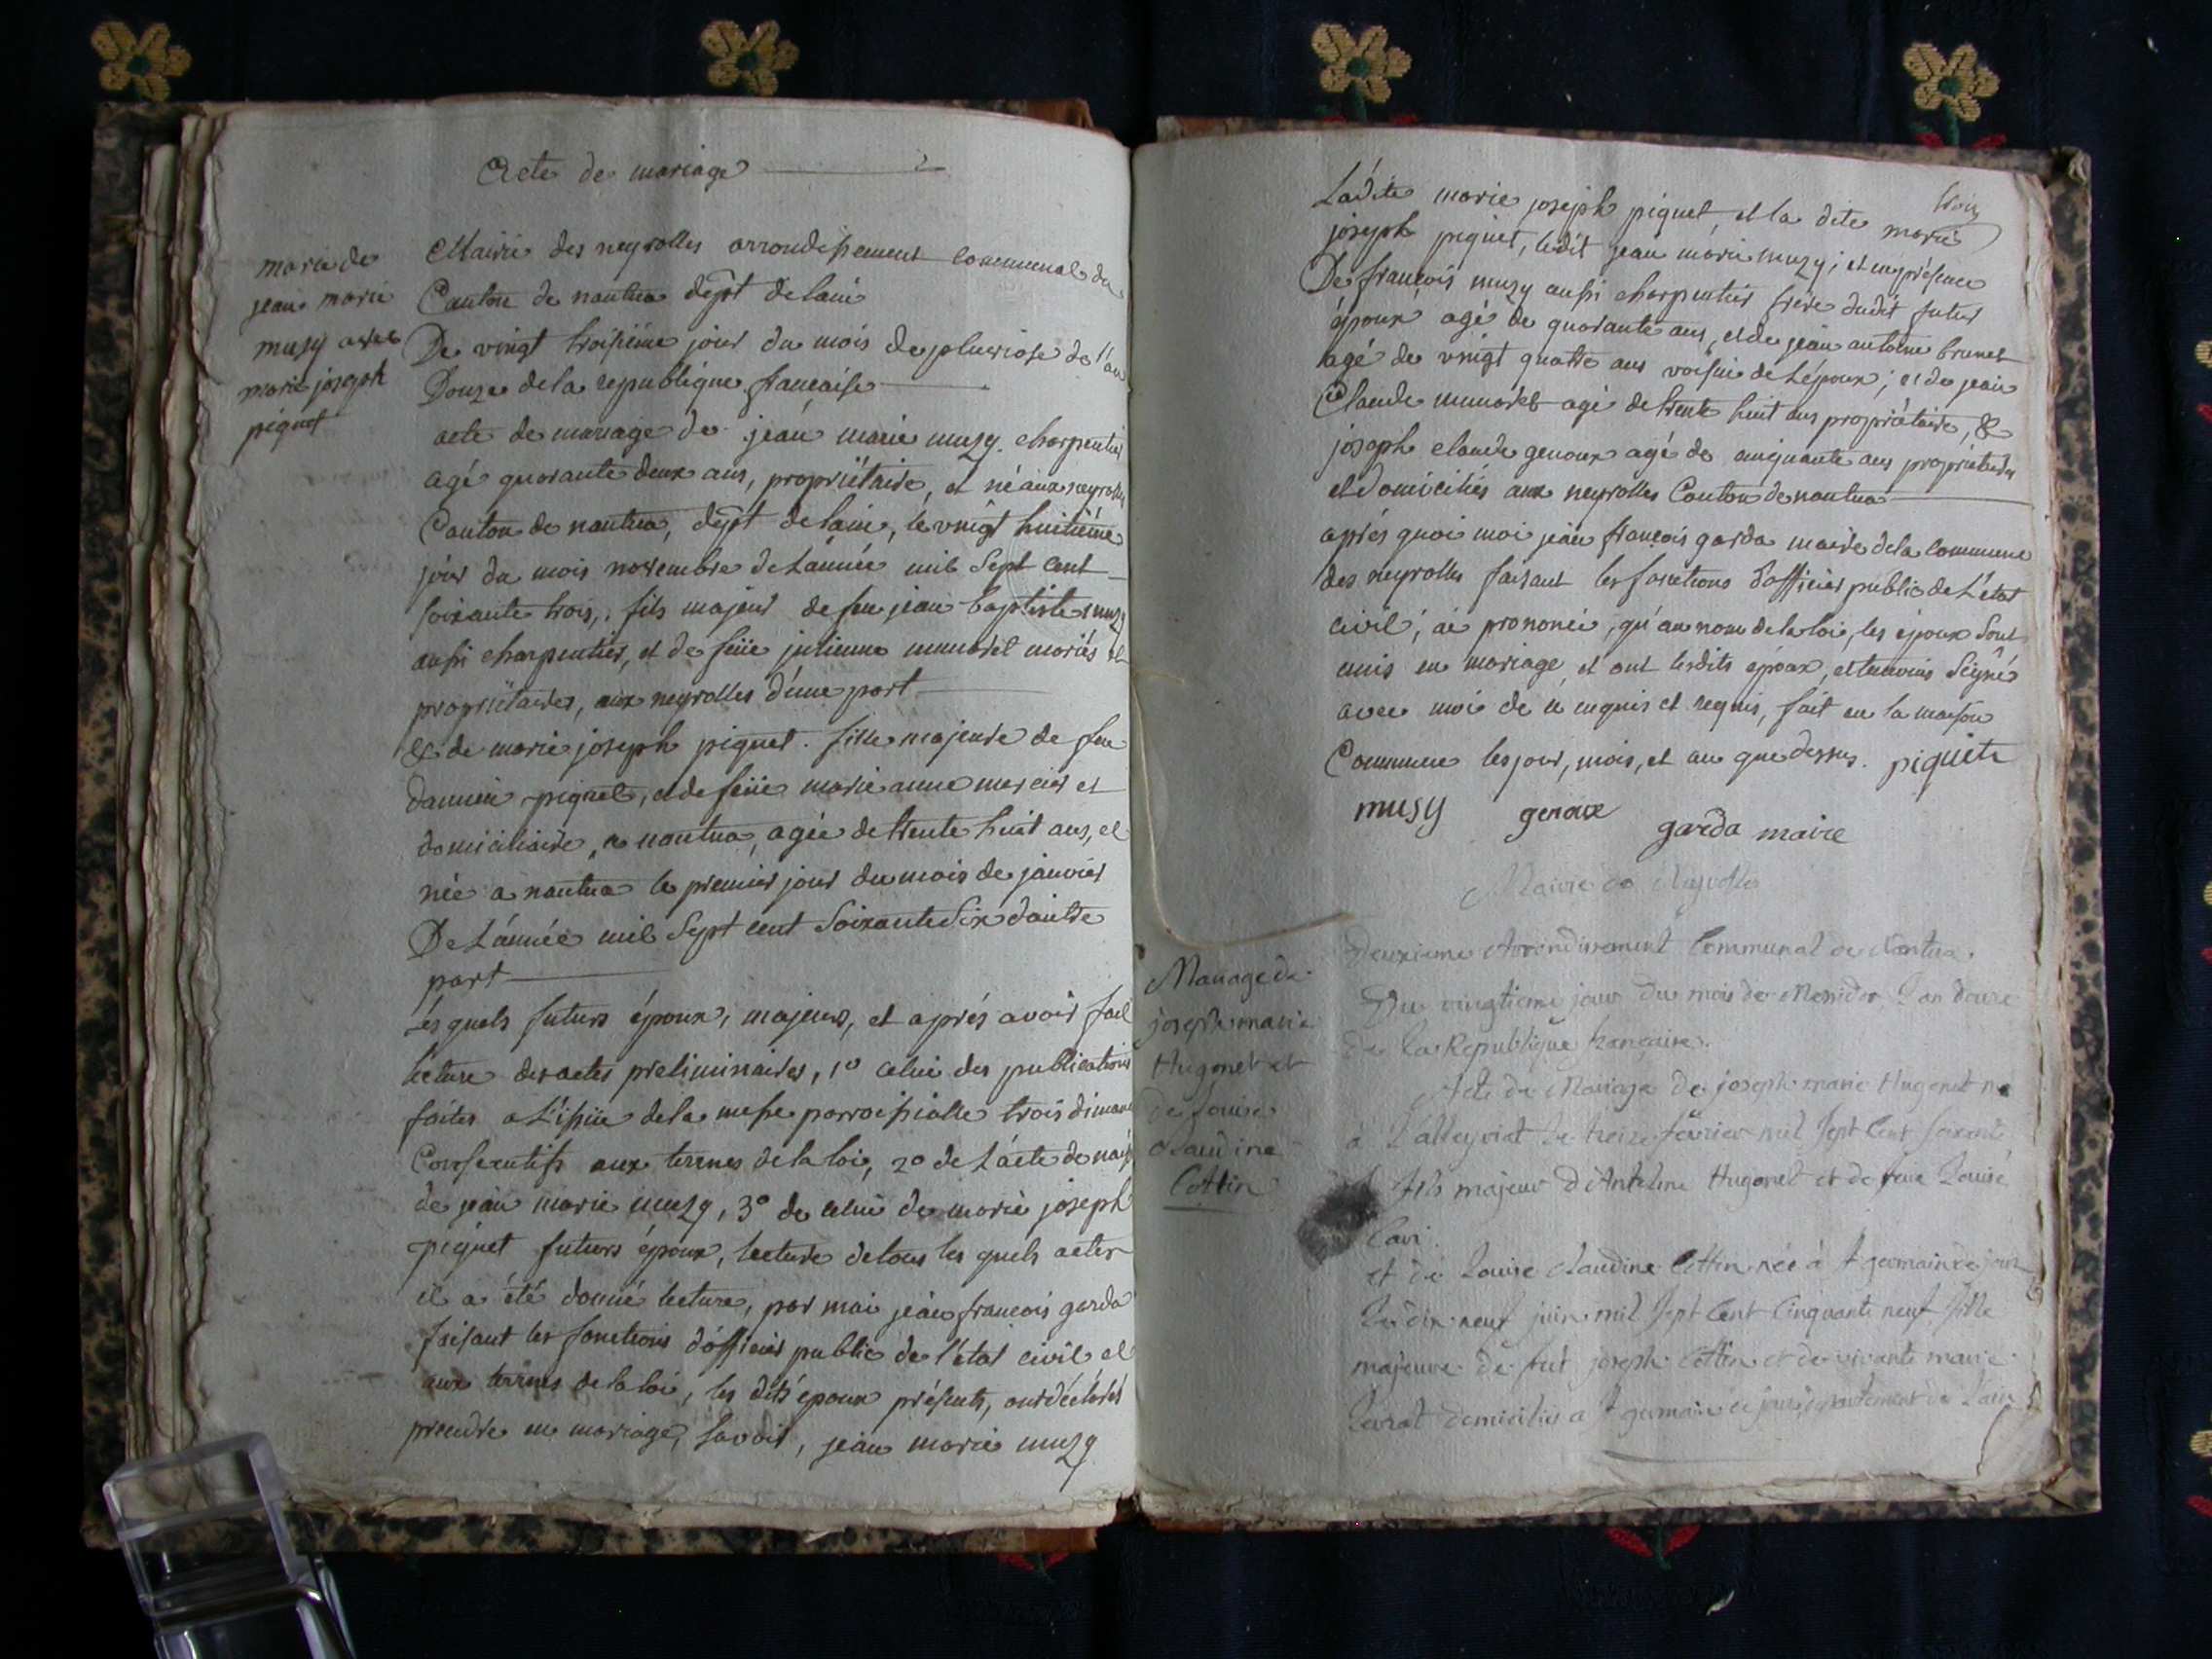 Acte de mariage
maria de
jean marie
musy avec
marie joseph
piquet
Mairie des neyrolles arrondissement communal du
Canton de nantua dept de lain
De vingt troisiéme jour du mois de pluviose de l'an
Douze de la république francaise
acte de mariage de jean marie muzy charpentier
agé quarante deux ans, propriétaire, et né aux neyrolles
Canton de nantua, dept de lain, le vingt huitiéme
jour du mois novembre de L'année mil Sept Cent
soixante trois, fils majeur de feu jean baptiste muzy
aussi charpentier, et de feüe julienne mariés et
propriétaires, aux neyrolles d'une part
& de marie joseph piquet. fille majeure de feu
piquet, et de feüe marie anne mercier et
domiciliaire, a nantua, agée de trente huit ans, et
née a nantua le premier jour du mois de janvier
De L'année mil Sept cent Soixante Six d'autre
part
Les quels futurs époux, majeurs, et aprés avoir fait
lecture des actes preliminaires, 1º celui des publications
faites a L'issüe de la messe parroissialle trois dimanc
Consecutifs aux termes de la loi, 2º de L'acte de nais
de jean marie muzy, 3º de celui de marie joseph
piquet futurs époux, lecture de tous les quels actes
il a été donné lecture, par moi jean francois garda
faisant les fonctions d'officier public de l'état civil et
aux termes de la loi, les dits époux présents, ont déclarés
prendre en mariage, savoir, jean marie muzy
trois
Ladite marie joseph piquet, et la dite marie
joseph piquet, ledit jean marie muzy; et en présence
De francois muzy aussi charpentier frere dudit futur
époux agé de quarante ans, et de jean antoine brunet
agé de vingt quatre ans voisin de L'époux; et de jean
Claude agé de trente huit ans propriétaire, &
joseph claude genoux agé de cinquante ans propriétaire
et domiciliés aux neyrolles Canton de nantua
aprés quoi moi jean francois garda maire de la commune
des neyrolles faisant les fonctions d'officier public de L'état
civil, ai prononcé, qu'au nom de la loi, les époux Sont
unis en mariage, et ont lesdits époux, et temoins Seigné
avec moi de ce enquis et requis, fait en la maison
Commune les jour, mois, et an que dessus. piquet
musy genoux garda maire
Mairie de Neyrolles
Mariage de
joseph marie
Hugonet et
de Louise
Claudine
Cottin
Deuxieme Arrondissement Communal de Nantua.
Du vingtieme jour du mois de Messidor L'an douze
de la Republique française.
Acte de Mariage de joseph marie Hugonet né
à Lalleyriat le treize fevrier mil Sept Cent soixante
fils majeur d'Antelme Hugonet et de feue Louise
et de Louise Claudine Cottin née à St germain de joux
Le dix neuf juin mil Sept Cent Cinquante neuf fille
majeure de fut joseph Cottin et de vivante marie
domiciliés a St germain de joux, departement de L'ain